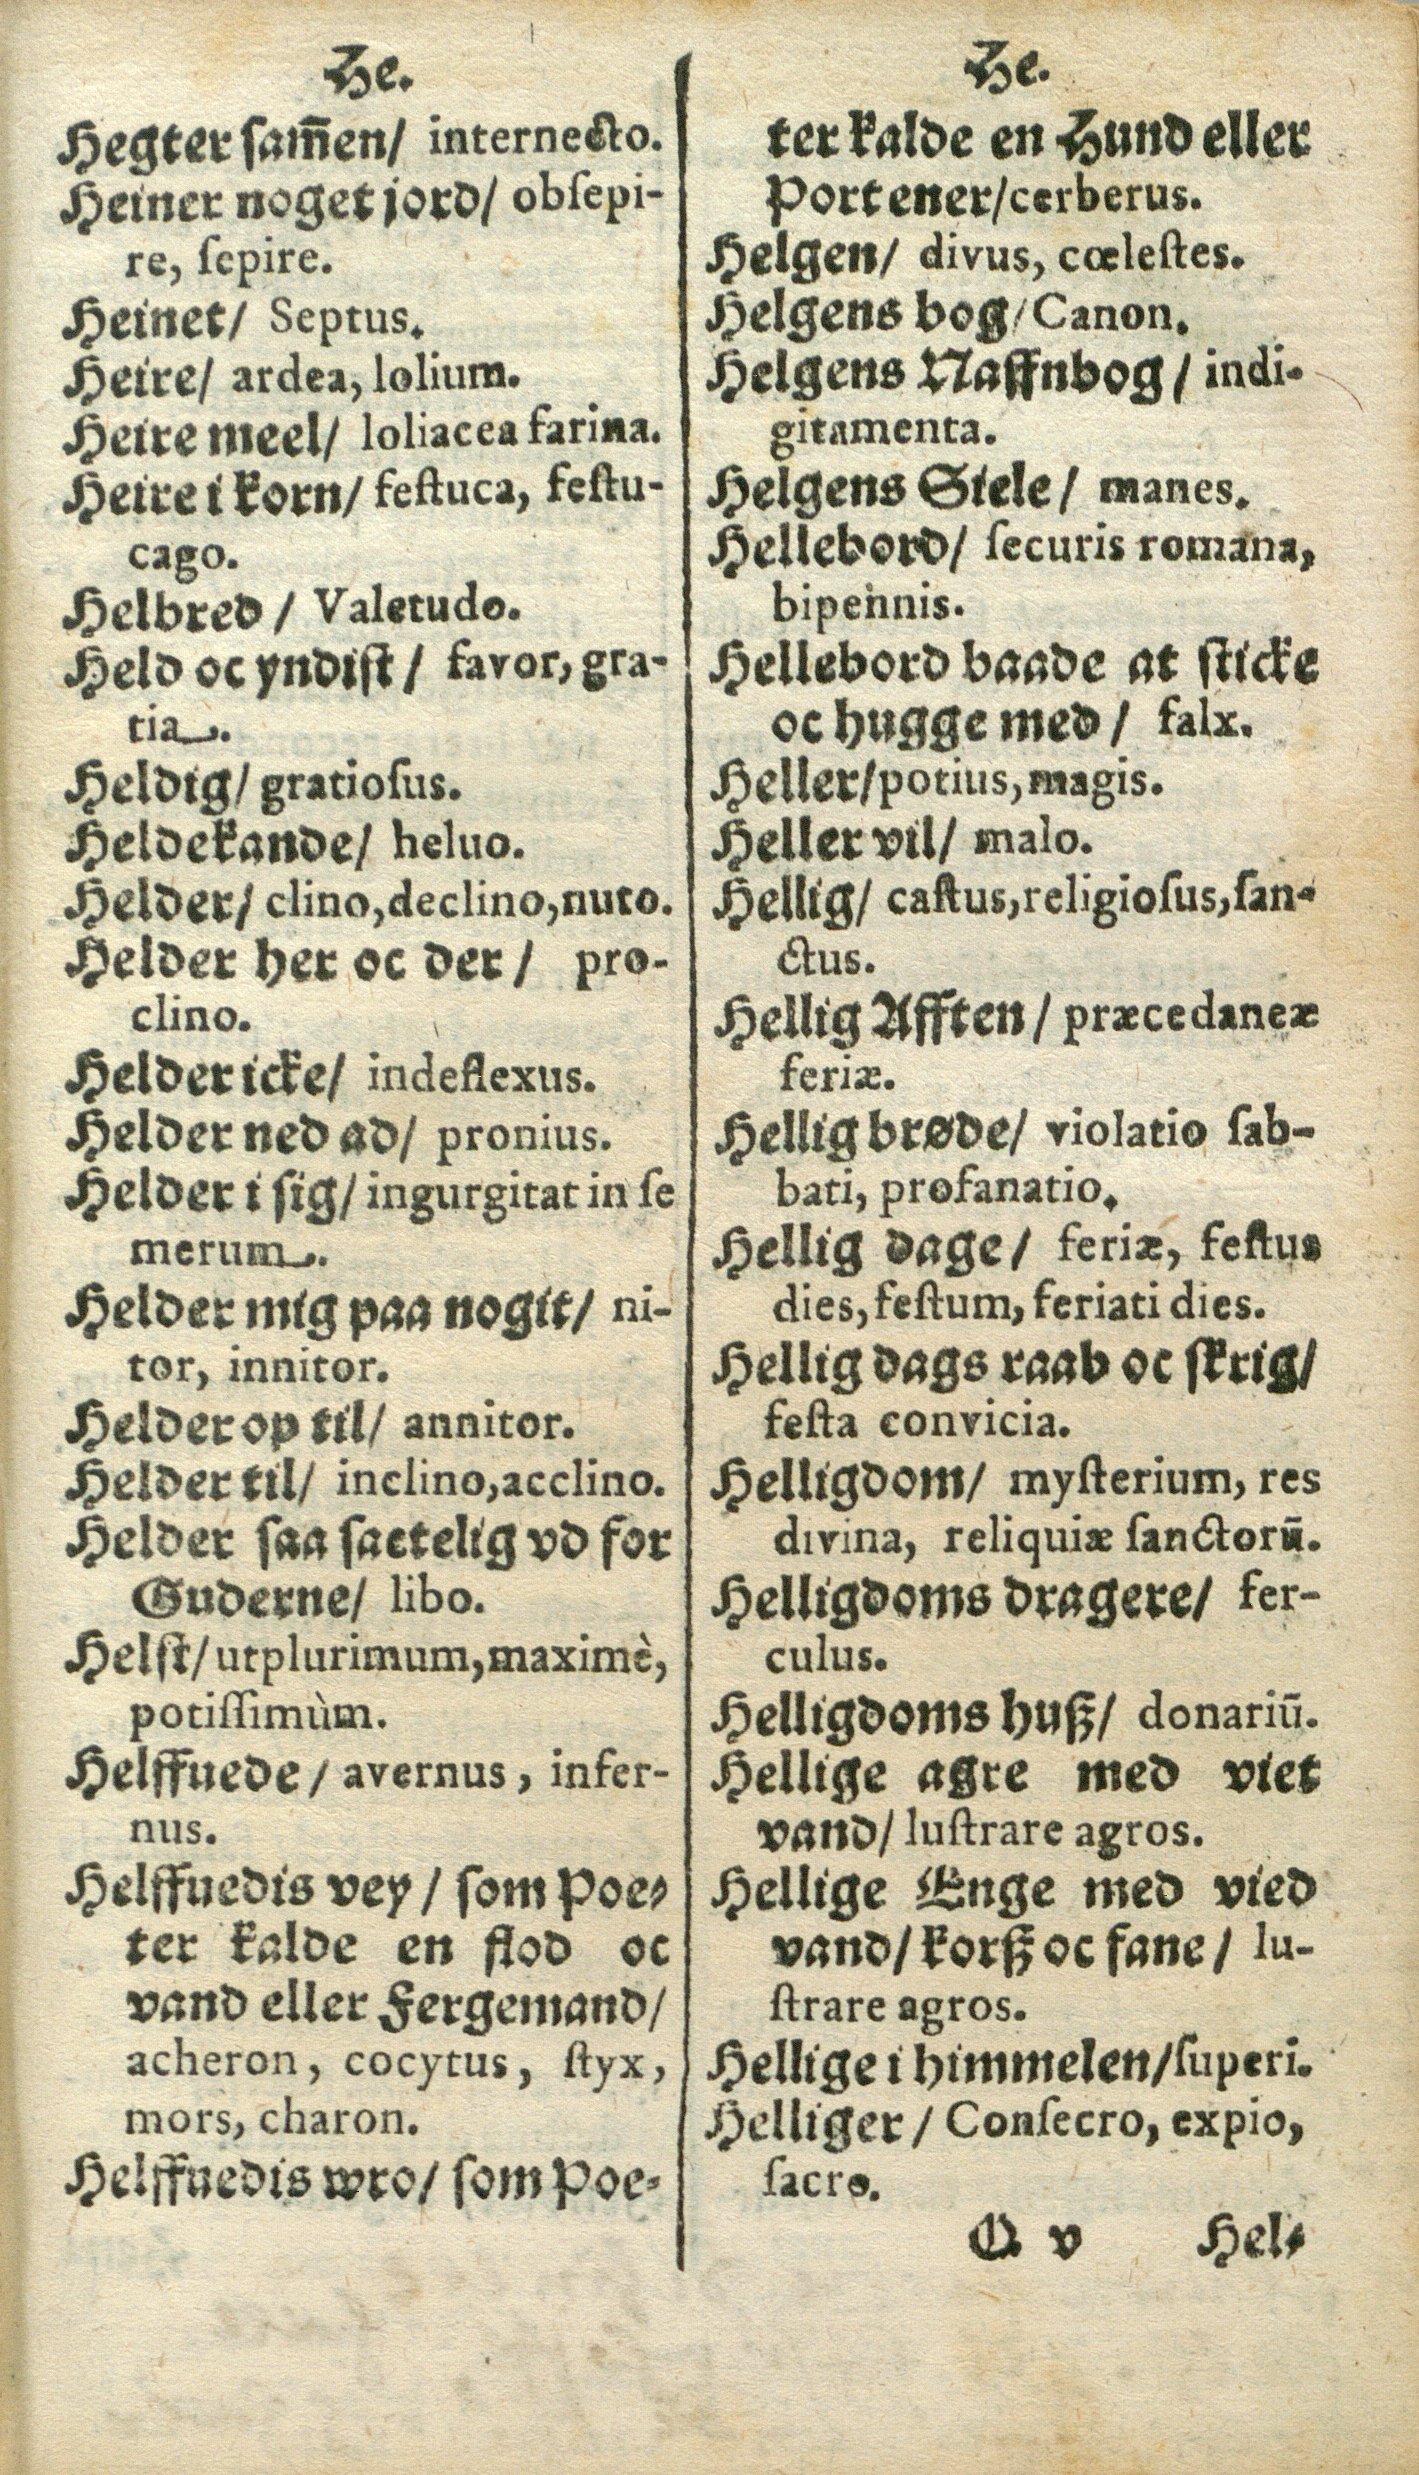 He.
Hegter sam̃en/ internecto.
Heiner noget jord/ obſepi-
re, ſepire.
Heinet/ Septus.
Heire/ ardea, lolium.
Heire meel/ loliacea farina.
Heire i korn/ feſtuca, feſtu-
cago.
Helbred / Valetudo.
Held oc yndiſt / favor, gra-
tia.
Heldig/ gratioſus.
Heldekande/ heluo.
Helder/ clino, declino, nuto.
Helder her oc der / pro-
clino.
Helder icke/ indeflexus.
Helder ned ad/ pronius.
Helder i ſig/ ingurgitat in ſe
merum.
Helder mig paa nogit/ ni-
tor, innitor.
Helder op til/ annitor.
Helder til/ inclino, acclino.
Helder ſaa ſactelig vd for
Guderne/ libo.
Helſt/ utplurimum, maximè,
potiſſimùm.
Helffuede / avernus, infer-
nus.
Helffuedis vey / ſom Poe-
ter kalde en flod oc
vand eller Fergemand/
acheron, cocytus, ſtyx,
mors, charon.
Helffuedis wro/ ſom Poe-
He.
ter kalde en Hund eller
Portener/ cerberus.
Helgen/ divus, cœleſtes.
Helgens bog/ Canon.
Helgens Naffnbog / indi-
gitamenta.
Helgens Siele / manes.
Hellebord/ ſecuris romana,
bipennis.
Hellebord baade at ſticke
oc hugge med / falx.
Heller/ potius, magis.
Heller vil/ malo.
Hellig/ caſtus, religioſus, ſan-
ctus.
Hellig Afften / præcedaneæ
feriæ.
Hellig brøde/ violatio ſab-
bati, profanatio.
Hellig dage/ feriæ, feſtus
dies, feſtum, feriati dies.
Hellig dags raab oc ſkrig/
feſta convicia.
Helligdom/ myſterium, res
divina, reliquiæ ſanctorū.
Helligdoms dragere/ fer-
culus.
Helligdoms huß/ donariū.
Hellige agre med viet
vand/ luſtrare agros.
Hellige Enge med vied
vand/ korß oc fane / lu-
ſtrare agros.
Hellige i himmelen/ ſuperi.
Helliger / Conſecro, expio,
ſacro.
Q v Hel-